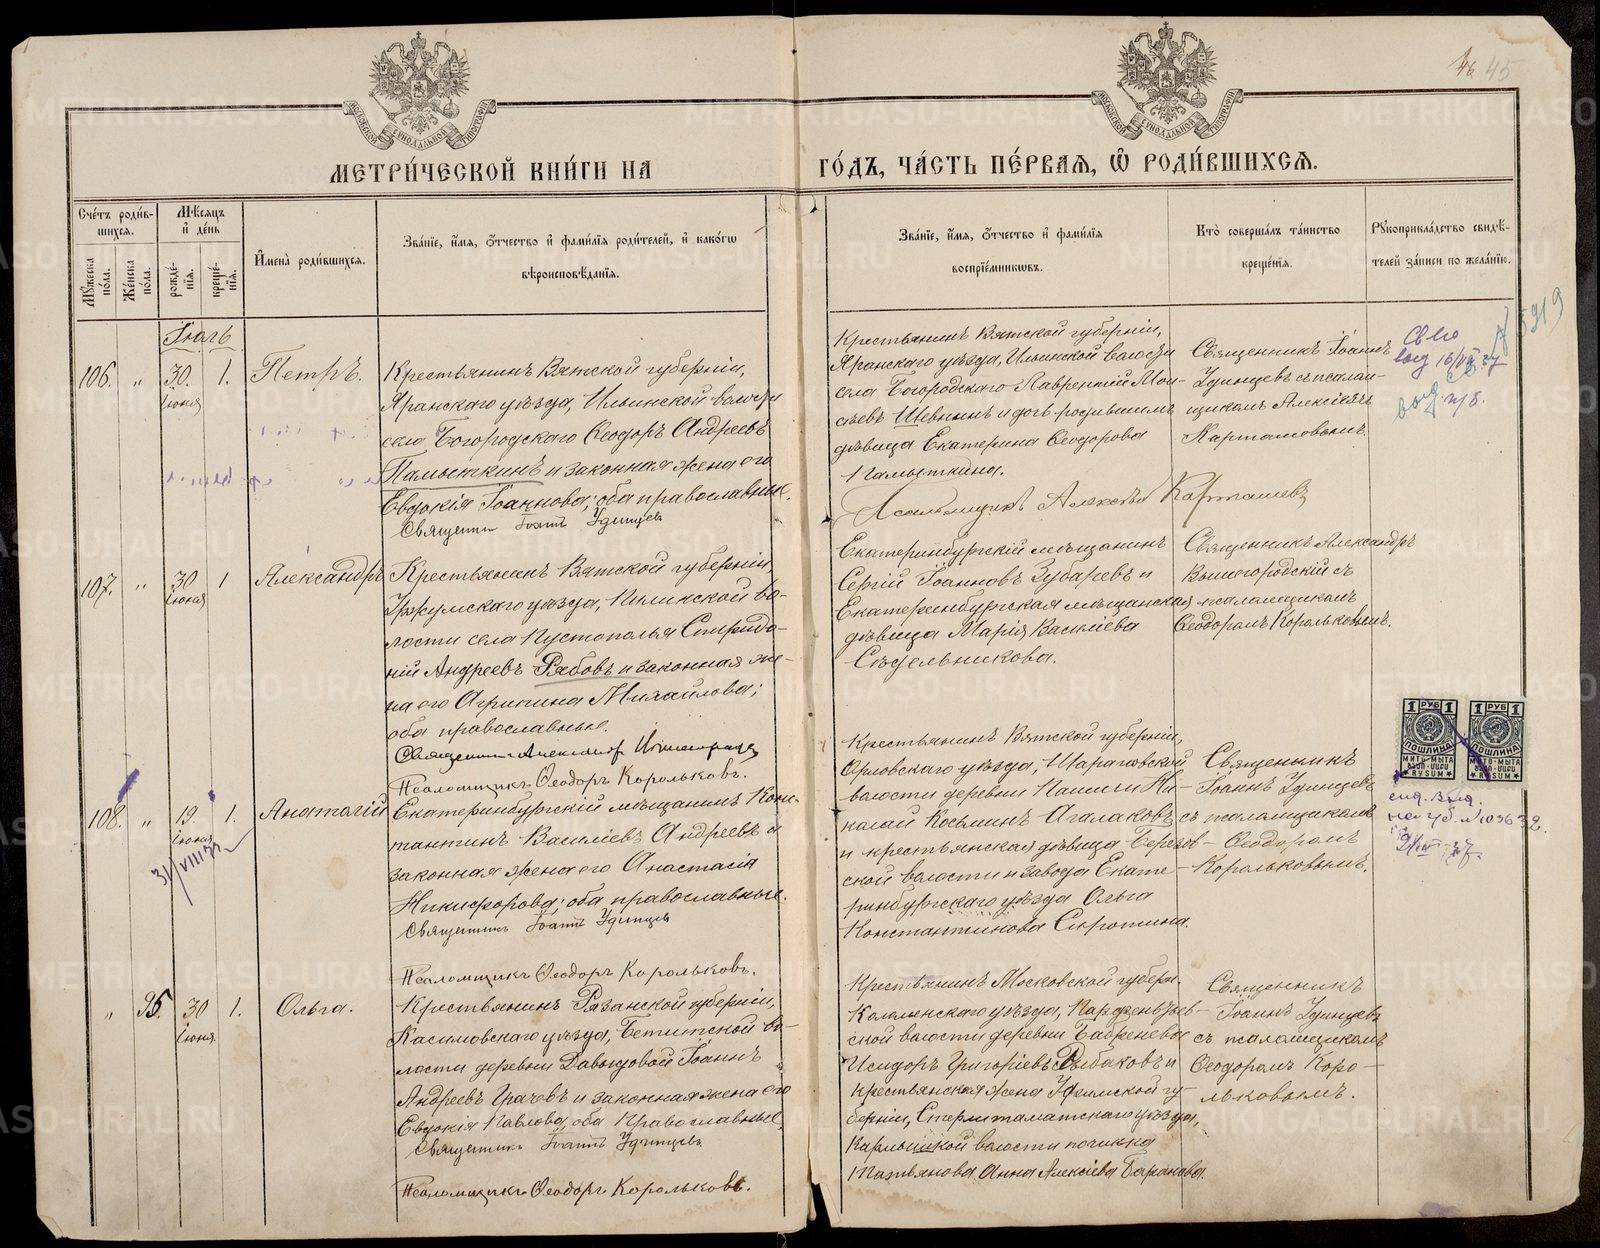 МЕТРИ́ЧЕСКОЙ КНИ́ГИ НА ГО́ДЪ, ЧА́СТЬ ПЕ́РВАѦ, Ѽ РОДИ́ВШИХСѦ.
45
Сче́тъ роди́в-
шихсѧ.
Мꙋ́жеска по́ла.
Же́нска по́ла.
Мѣ́сѧцъ
и҆ де́нь
рожде́нїѧ.
креще́нїѧ.
И҆мена̀ роди́вшихсѧ.
Зва́нїе, и҆́мѧ, ѻ҆́тчество и҆ фами́лїѧ роди́телей, и҆ како́гѡ
вѣроисповѣ́данїѧ.
Зва́нїе, и҆́мѧ, ѻ҆́тчество и҆ фами́лїѧ
воспрїе́мникѡвъ.
Кто̀ соверша́лъ та́инство
креще́нїѧ.
Рꙋкоприкла́дство свидѣ́-
телей за́писи по жела́нїю.
Іюль
106. " 30. 1. Петръ.
Іюня
Крестьянинъ Вятской губерніи,
Яранскаго уѣзда, Ильинской волости
села Богородскаго Ѳеодоръ Андреевъ
Памыткинъ и законная жена его
Евдокія Іоаннова; оба православные.
Священникъ Іоаннъ Удинцевъ
Крестьянинъ Вятской губерніи,
Яранскаго уѣзда, Ильинской волости
села Богородскаго Лаврентій Мои-
сѣевъ Шевнинъ и дочь родившихъ
дѣвица Екатерина Ѳеодорова
Памыткина.
Псаломщикъ Алексѣй Карташевъ
Священникъ Іоаннъ
Удинцевъ съ псалом-
щикомъ Алексіемъ
Карташовымъ.
107. " 30 1 Александръ
Іюня
Крестьянинъ Вятской губерніи,
Уржумскаго уѣзда, Кичинской во-
лости села Пустополья Спиридо-
ній Андреевъ Рябовъ и законная же-
на его Агрипина Михайлова;
оба православные.
Священникъ Александръ Вышегородскій
Псаломщикъ Ѳеодоръ Корольковъ.
Екатеринбургскій мѣщанинъ
Сергій Іоанновъ Зубаревъ и
Екатеринбургская мѣщанская
дѣвица Марія Василіева
Сѣдельникова.
Священникъ Александръ
Вышегородскій съ
псаломщикомъ
Ѳеодоромъ Корольковымъ.
108. " 19. 1. Анатолій
Іюня
31/VIII 37
Екатеринбургскій мѣщанинъ Конс-
тантинъ Василіевъ Андреевъ и
законная жена его Анастасія
Никифорова; оба православные.
Священникъ Іоаннъ Удинцевъ
Псаломщикъ Ѳеодоръ Корольковъ.
Крестьянинъ Вятской губерніи,
Орловскаго уѣзда, Шараговской
волости деревни Пашичи Ни-
колай Косьминъ Агалаковъ
и крестьянская дѣвица Березов-
ской волости и завода Екате-
ринбургскаго уѣзда Ольга
Константинова Сиротина.
Священникъ
Іоаннъ Удинцевъ
съ псаломщикомъ
Ѳеодоромъ
Корольковымъ.
1 РУБ 1
ПОШЛИНА
МИТО-МЫТА
RÜSUM
1 РУБ 1
ПОШЛИНА
МИТО-МЫТА
RÜSUM
" 95. 30 1. Ольга.
Іюня
Крестьянинъ Рязанской губерніи,
Касимовскаго уѣзда, Бетитской во-
лости деревни Давыдовой Іоаннъ
Андреевъ Грачевъ и законная жена его
Евдокія Павлова, оба православные.
Священникъ Іоаннъ Удинцевъ
Псаломщикъ Ѳеодоръ Корольковъ.
Крестьянинъ Московской губерн.
Коломенскаго уѣзда, Парфентьев-
ской волости деревни Бабренева
Исидоръ Григоріевъ Рыбаковъ и
крестьянская жена Уфимской гу-
берніи, Стерлитаматскаго уѣзда,
волости починка
Анна Алексіева Баранова.
Священникъ
Іоаннъ Удинцевъ
съ псаломщикомъ
Ѳеодоромъ Коро-
льковымъ.
METRIKI.GASO-URAL.RU